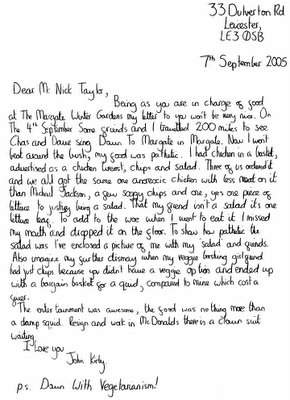 33 Dulverton Rd
Leicester,
LE3 0SB
7th September 2005
Dear Mr Nick Taylor,
Being as you are in charge of food
at The Margate Winter Gardens my letter to you won't be very nice. On
The 4th September Some friends and I travelled 200 miles to see
Chas and Dave sing Down To Margate in Margate. Now I won't
beat around the bush, my food was pathetic. I had chicken in a basket,
advertised as a chicken breast, chips and salad. Three of us ordered it
and we all got the same one anorexic chicken with less meat on it
than Michael Jackson, a few soggy chips and one, yes one piece of
lettuce to justify being a salad. That my friend isn't a salad it's one
lettuce leaf. To add to the woe when I went to eat it I missed
my mouth and dropped it on the floor. To show how pathetic the
salad was I've enclosed a picture of me with my 'salad' and friends.
Also imagine my further dismay when my veggie bashing girlfriend
had just chips because you didn't have a veggie option and ended up
with a bargain basket for a quid, compared to mine which cost a
fiver.
The entertainment was awesome, the food was nothing more than
a damp squid. Resign and work in McDonalds there is a clown suit
waiting.
I love you
John Kirby.
p.s. Down With Vegetarianism!